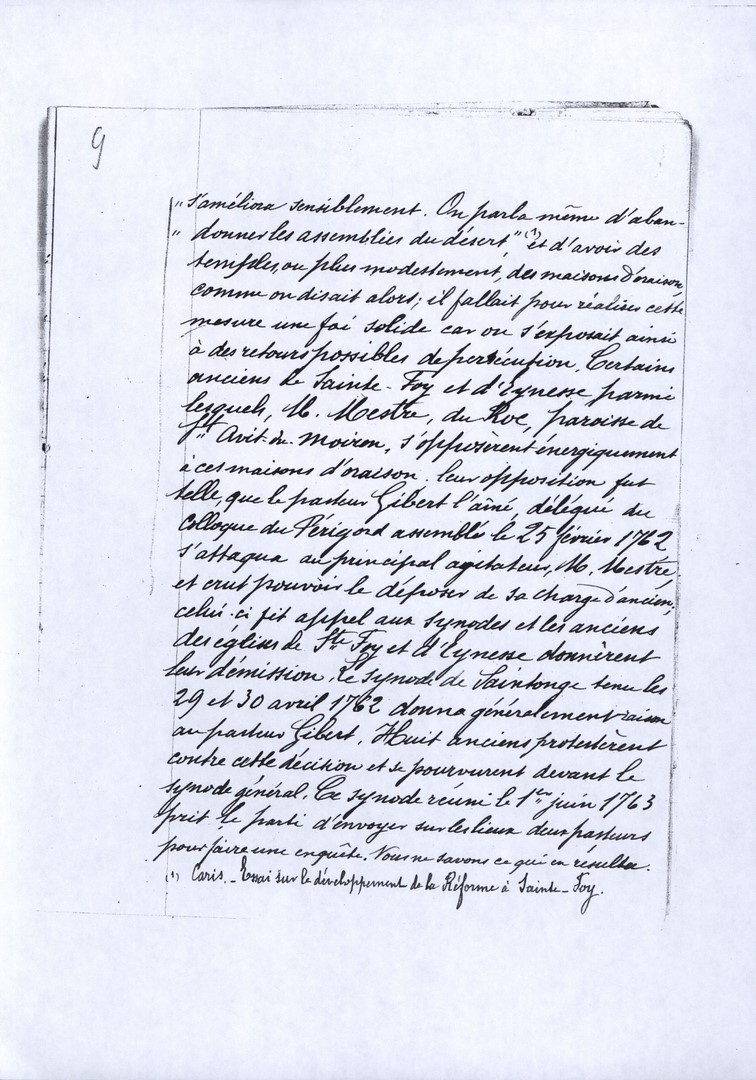 9
" s'améliora sensiblement. On parla même d'aban-
" donner les assemblées du désert" (1) et d'avoir des
temples, ou plus modestement, des maisons d'oraison,
comme on disait alors; il fallait pour réaliser cette
mesure une foi solide car on s'exposait ainsi
à des retours possibles de persécution. Certains
anciens de Sainte-Foy et d'Eynesse parmi
lesquels, M. Mestre, du Roc, paroisse de
St Avit-du-moiron, s'opposèrent énergiquement
à ces maisons d'oraison. leur opposition fut
telle, que le pasteur Gibert l'aîné, délégué du
Colloque du Périgord assemblé le 25 février 1762
s'attaqua au principal agitateur, M. Mestre,
et crut pouvoir le déposer de sa charge d'ancien;
celui-ci fit appel aux synodes et les anciens
des églises de Ste Foy et d'Eynesse donnèrent
leur démission. Le synode de Saintonge tenu les
29 et 30 avril 1762 donna généralement raison
au pasteur Gibert. Huit anciens protestèrent
contre cette décision et se pourvurent devant le
synode général. Ce synode réuni le 1er juin 1763
prit le parti d'envoyer sur les lieux deux pasteurs
pour faire une enquête. Nous ne savons ce qui en résulta.
(1) Caris. _ Essai sur le développement de la Réforme à Sainte-Foy.